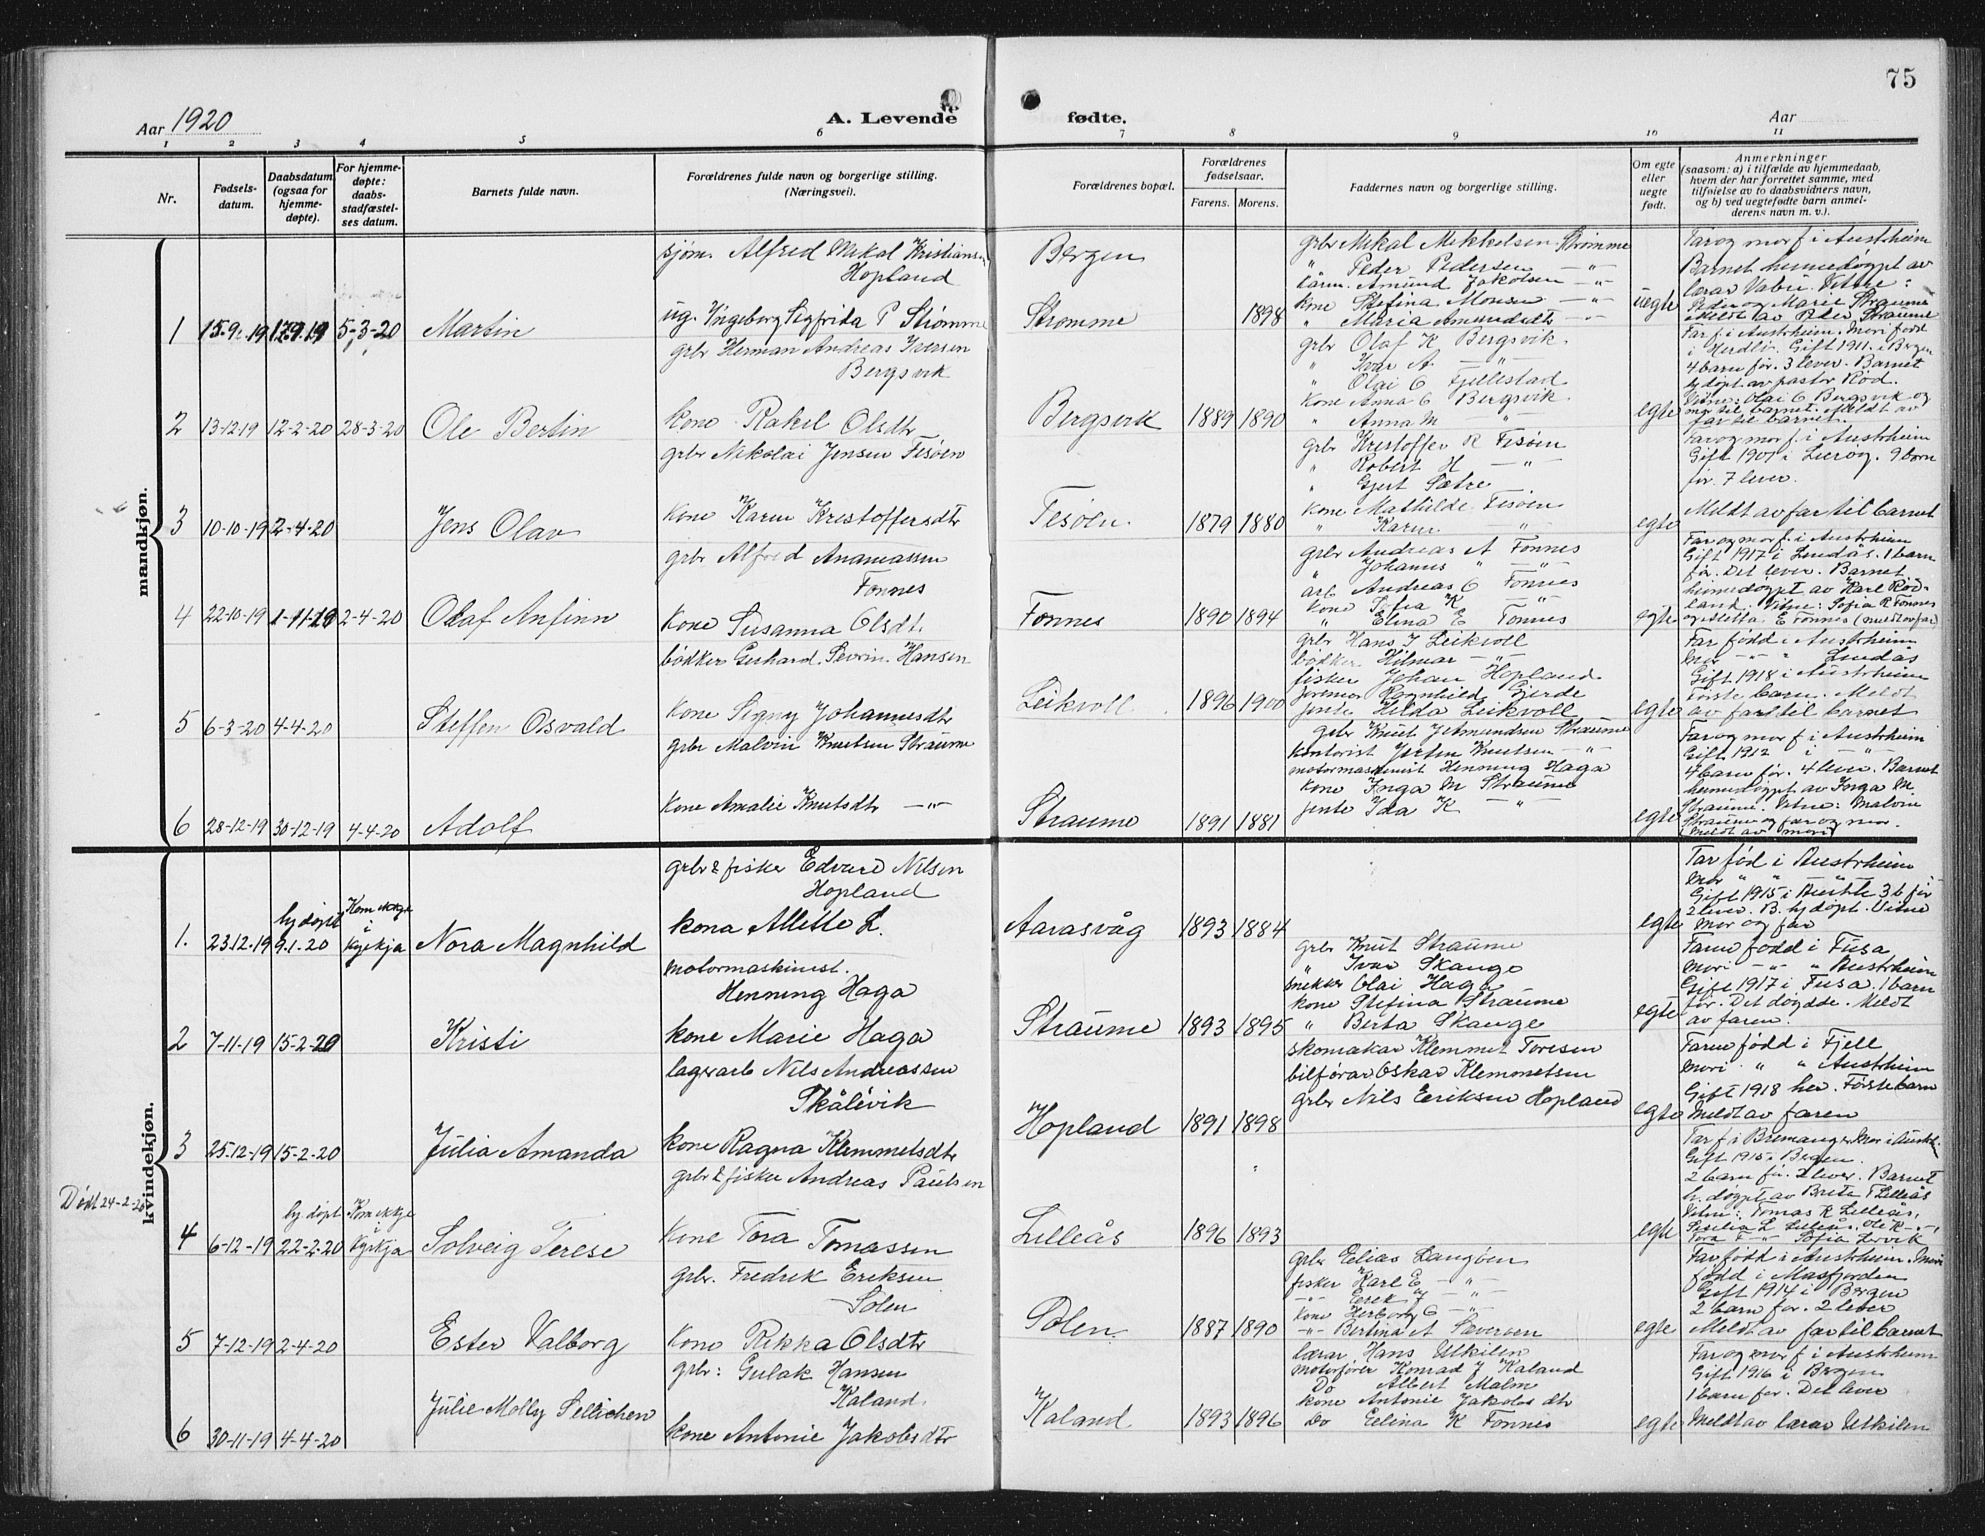 75
Aar 1920
A. Levende
fødte.
Aar
1 2 3 4 5 6 7 8 9 10 11
Nr.
Fødsels-
datum.
Daabsdatum
(ogsaa for
hjemme-
døpte).
For hjemme-
døpte:
daabs-
stadfæstel-
ses datum.
Barnets fulde navn.
Forældrenes fulde navn og borgerlige stilling.
(Næringsvei).
Forældrenes bopæl.
Forældrenes
fødselsaar.
Farens. Morens.
Faddernes navn og borgerlige stilling.
Om egte
eller
uegte
født.
Anmerkninger
(saasom: a) i tilfælde av hjemmedaab,
hvem der har forrettet samme, med
tilføielse av to daabsvidners navn,
og b) ved uegtefødte barn anmel-
derens navn m. v.).
mandkjøn.
1 15.9.19 17.9.19 5-3-20 Martin
sjøm. Alfred Mikal Kristiansen
Hopland
ug. Ingeborg Sigfrida P Strømme
Bergen
Strømme 1898
grbr Mikal Mikkelsen Strømme
" Peder Pedersen — " —
lærer. Amund Jakobsen — " —
kone Stefina Monsen — " —
" Maria Amundsdtr — " —
uegte
Far og mor f. i Austrheim
Barnet heimedøypt av
lærar Vabø. Vitne:
Peder og Marie Straume
Meldt av Peder Straume
2 13-12-19 12-2-20 28-3-20 Ole Bertin
grbr Herman Andreas Iversen
Bergsvik
kone Rakel Olsdtr
Bergsvik 1889 1890
grbr Olaf K Bergsvik.
" Ivar A — " —
" Olai O Fjellestad
Kone Anna O Bergsvik.
" Anna M "
egte
Far f. i Austrheim. Mori født
i Herdla. Gift 1911 i Bergen
4 barn før. 3 lever. Barnet
hj døpt av pastor Rød.
Vitne: Olai O Bergsvik og
mor til barnet. Meldt av
far til barnet.
3 10-10-19 2-4-20 Jens Olav
grbr Nikolai Jensen Fisøen
kone Karen Kristoffersdtr
Fesøen. 1879 1880
grbr Kristoffer R Fesøen
" Robert H — " —
" Gjert Sætre
kone Mathilde Fisøen
" Karen "
egte
Far og mor f. i Austrheim
Gift 1907 i Lurøy. 9 barn
før 7 lever.
Meldt av far til barnet
4 22-10-19 1-11-19 2-4-20 Olaf Anfinn
grbr Alfred Ananiassen
Fonnes
Kone Susanna Olsdt.
Fonnes 1890 1894
grbr Andreas A Fonnes
" Johanes " — " —
arb Andreas O Fonnes
kone Sofia K — " —
" Elina E Fonnes
egte
Far og mor f. i Austrheim
Gift 1917 i Lindås. 1 barn
før. Det lever. Barnet
heimedøypt av Karl Rød-
land. Vitne: Sofia K Fonnes
E Fonnes (meldt av far)
5 6-3-20 4-4-20 Steffen Osvald
bødker Gerhard Severin Hansen
Kone Signy Johannesdtr
Leikvoll 1896 1900
grbr Hans J Leikvoll
bødker Hilmar — " —
fisker Johan Hopland
Ragnhild Gjerde
jente Hilda Leikvoll
egte
Far født i Austrheim
Mor — " — " Lindås
Gift 1918 i Austrheim
Første barn. Meldt
av far til barnet
6 28-12-19 30-12-19 4-4-20 Adolf
grbr Malvin Knutsen Straume
Kone Amalie Knutsdtr — " —
Straume 1891 1881
grbr Knut Jetmundsen Straume
kontorist Knutsen — " —
motormaskinist Henning Haga
kone Inga M Straume
jente Ida K — " —
egte
Far og mor f i Austrheim
Gift 1912 i — " —
4 barn før. 4 lever. Barnet
heimedøypt av Inga M.
Straume. Vitne: Malvin
Straume og far og mor.
(Meldt av mori)
kvindekjøn.
1. 23.12.19 hj døpt 9.1.20 Kom ikkje i kyrkja Nora Magnhild
grbr & fisker Edvard Nilsen
Hopland
kona Allette L.
Aarasvåg 1893 1884
egte
Far fød i Austrheim
Mor " " "
Gift 1915 i Austrh. 3 b før
2 lever. B. hj døpt. Vitne
Mor og far
2 7-11-19 15-2-20 Kristi
motormaskinist.
Henning Haga
kone Marie Haga
Straume 1893 1895
grbr Knut Straume
" Ivar Skauge
snekker Olai Haga
kone Stefina Straume
" Berta Skauge
egte
Faren fødd i Fusa
Mori — " — " Austrheim
Gift 1917 i Fusa. 1 barn
før. Det døydde. Meldt
av faren.
3 25-12-19 15-2-20 Julia Amanda
lagerarb Nils Andreassen
Skålevik
kone Ragna Klemmetsdtr
Hopland 1891 1898
skomakar Klemmet Toresen
bilførar Oskar Klemmetsen
grbr Nils Eeriksen Hopland
egte
Faren fødd i Fjell
Mori " " Austrheim
Gift 1918 her. Første barn
Meldt av faren
Død 24-2-20
4 6-12-19 hj døpt 22-2-20 Kom ikkje i kyrkja Solveig Terese
grbr & fisker Andreas Paulsen
Kone Tora Tomassen
Lilleås 1896 1893
egte
Far f i Bremanger Mor i Austrh.
Gift 1915 i Bergen.
2 barn før. 2 lever. Barnet
h. døypt av Brita T Lilleås
Vitne: Tomas K Lilleås,
L Lilleås, Ole K — " —,
Tora T — " — Sofia
5 7-12-19 2-4-20 Ester Valborg
grbr. Fredrik Eriksen
Solen
Kone Rikka Olsdtr
Solen. 1887 1890
grbr Eelias Langøen
fisker Karl E — " —
— " — Eerik J — " —
kone Herborg O — " —
— " — Bertina A Sæversen
egte
Far fødd i Austrheim. Mori
fødd i Masfjorden
Gift 1914 i Bergen
2 barn før. 2 lever
Meldt av far til barnet
6 30-11-19 4-4-20 Julie Molly Sellichen
grbr: Gulak Hansen
Kaland.
kone Antonie Jakobsdtr
Kaland 1893 1896
lærar Hans Utkilen
motorfører Konrad J Kaland
Do Albert Malm
kone Antonie Jakobsdtr
Do Eelina K Fonnes
egte
Far og mor f. i Austrheim
Gift 1916 i Bergen
1 barn før. Det lever
Meldt av lærar Utkilen